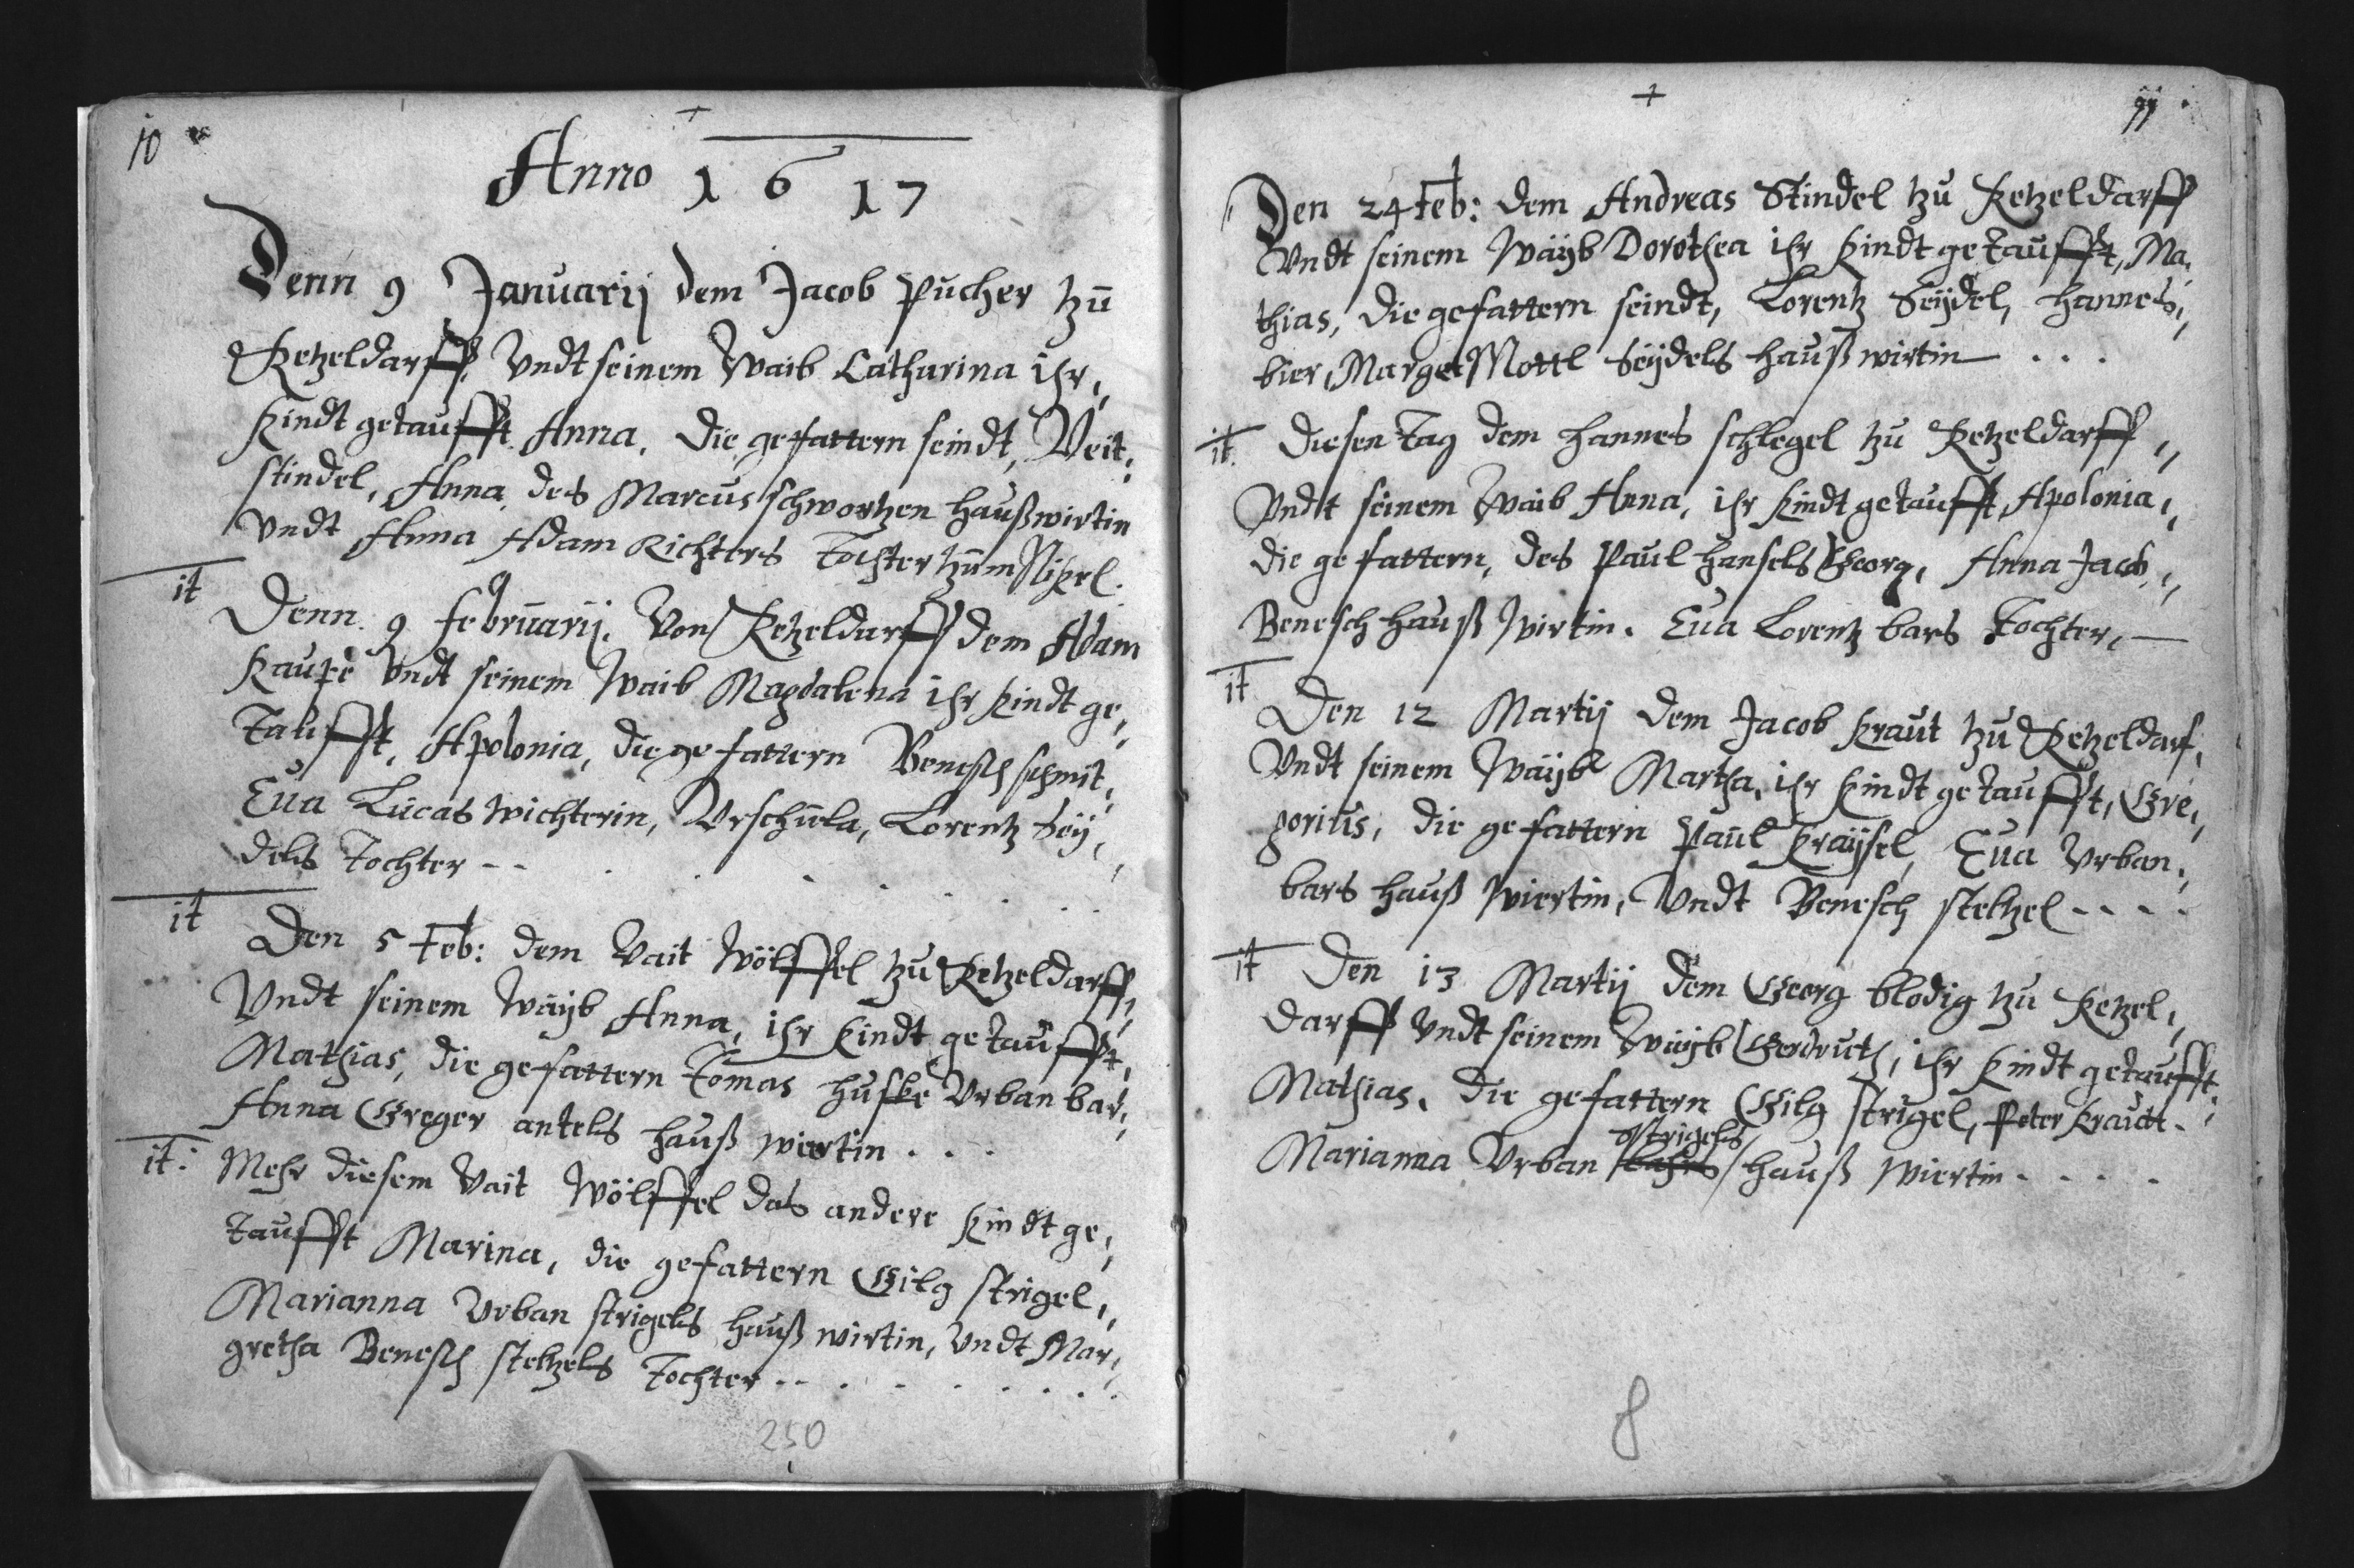 10
Anno 1617
Denn 9 Januarij dem Jacob Pucher tzu
Ketzeldarff, Vndt seinem Waib Catharina ihr,
Kindt getaufft Anna, die gefattern seindt, Veit,
stindel, Anna des Marcus schwortzen haußwirtin
Vndt Anna Adam Richters Tochter tzum Nikel.
it
Denn 9 februarij. Von Ketzeldarff dem Adam
Kaupe Vndt seinem Waib Magdalena ihr Kindt ge,
Taufft, Apolonia, die gefattern Benesch schmit,
Eua Lucas wichterin, Vrschula, Lorentz Seÿ,
dels Tochter --
it
Den 5 Feb: dem Vait Wölffel tzu Ketzeldarff,
Vndt seinem Waÿb Anna, ihr Kindt getaufft,
Mathias, die gefattern Tomas huske Vrban bar,
Anna Greger antels hauß wiertin . . .
it: Mehr diesem Vait Wölffel das andere Kindt ge,
taufft Marina, die gefattern Gilg strigel,
Marianna Vrban strigels hauß wirtin, Vndt Mar,
gretha Benesch steltzels Tochter -- . . . . . .
250
11
Den 24 Feb: dem Andreas Stindel tzu Ketzeldarff
Vndt seinem Waÿb Dorothea ihr Kindt getaufft, Ma,
thias, die gefattern seindt, Lorentz Seÿdel, hannes,
bier, Marget Mottl Seÿdels hauß wirtin . . .
it. Diesen Tag dem hannes schlegel tzu Ketzeldarff,
Vndt seinem Waib Anna, ihr Kindt getaufft Apolonia,
die gefattern, des Paul hansels Georg, Anna Jacob,
Benesch hauß wirtin. Eua Lorentz bars Tochter, —
it
Den 12 Martij dem Jacob Kraut tzu Ketzeldarf,
Vndt seinem Waÿb Martha, ihr Kindt getaufft, Gre,
gorius, die gefattern Paul Kraÿsel, Eua Vrban,
bars hauß wiertin, Vndt Benesch steltzel - - - -
it Den 13 Martij dem Georg blodig tzu Ketzel,
darff Vndt seinem Waÿb Gerdruth, ihr Kindt getaufft,
Mathias, die gefattern Gilg strigel, Peter Krautt.
strigels
Marianna Vrban bahrs hauß wiertin - . . . .
8